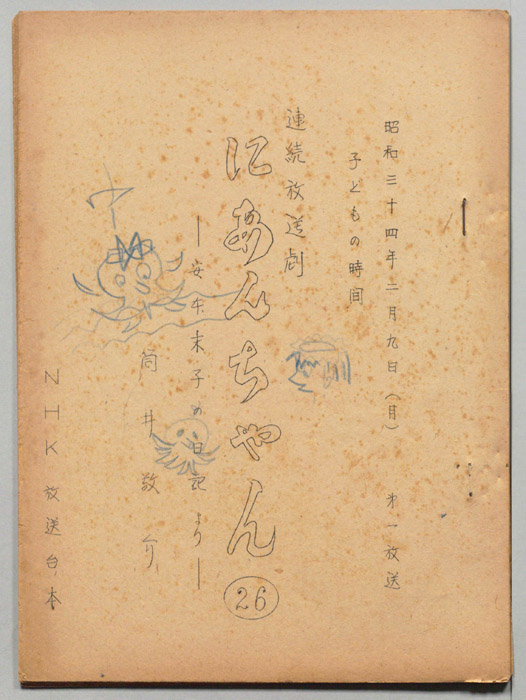 昭和三十四年二月九日(月) 第一放送
子どもの時間
連続放送劇
にあんちゃん ㉖
―安本末子の日記より―
筒井敬介
NHK放送台本